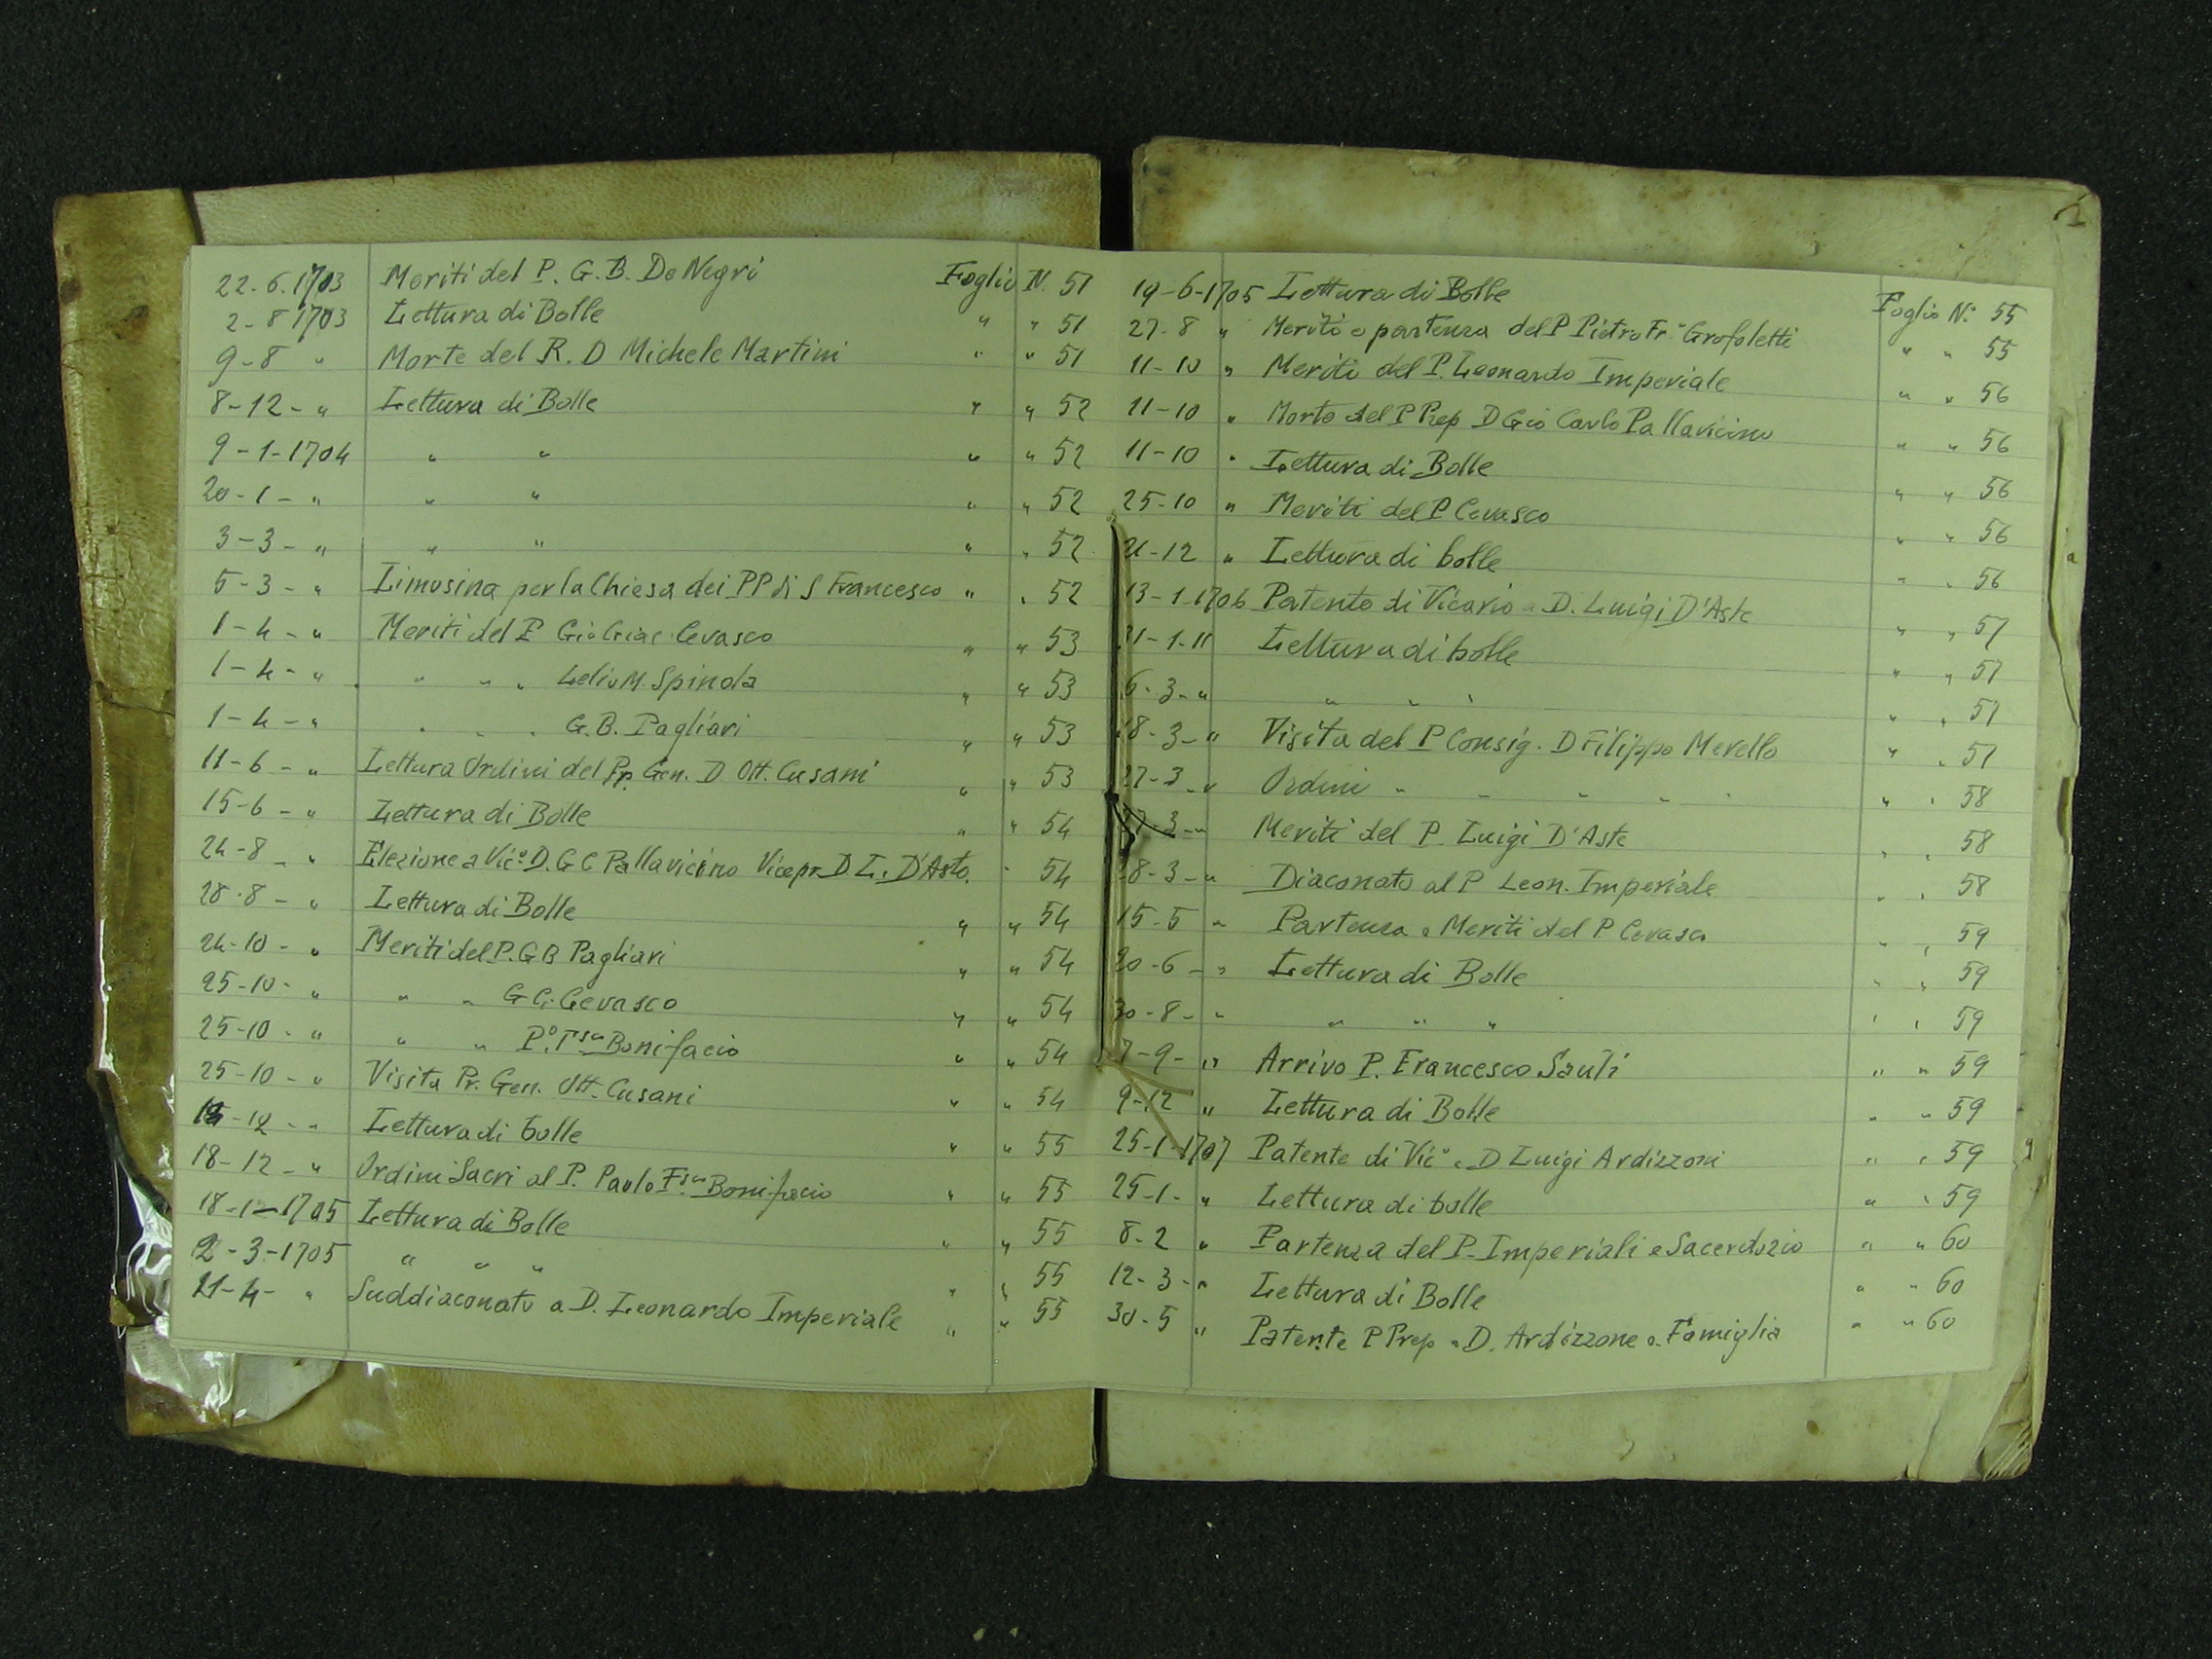 22-6-1703 Meriti del P. G. B. De Negri Foglio N. 51
2-8 1703 Lettura di Bolle " " 51
9-8 " Morte del R. D Michele Martini " " 51
8-12-" Lettura di Bolle " " 52
9-1-1704 " " " " 52
20-1-" " " " " 52
3-3-" " " " " 52
5-3-" Limosina per la Chiesa dei PP di S Francesco " " 52
1-4-" Meriti del P Gio Giac. Cevasco " " 53
1-4-" " " " Lelio M. Spinola " " 53
1-4-" " " " G. B. Pagliari " " 53
11-6-" Lettura Ordini del Pr. Gen. D Ott. Cusani " " 53
15-6-" Lettura di Bolle " " 54
24-8-" Elezione a Vic.o D. G C Pallavicino Vicepr D L. D'Asto. " 54
28-8-" Lettura di Bolle " " 54
24-10-" Meriti del P. G B Pagliari " " 54
25-10-" " " G C. Cevasco " " 54
25-10-" " " P.o Fsco Bonifacio " " 54
25-10-" Visita Pr. Gen. Ott. Cusani " " 54
-12-" Lettura di bolle " " 55
18-12-" Ordini Sacri al P. Paolo F.sco Bonifacio " " 55
18-1-1705 Lettura di Bolle " " 55
2-3-1705 " " " " " 55
21-4-" Suddiaconato a D. Leonardo Imperiale " " 55
19-6-1705 Lettura di Bolle Foglio N: 55
27-8 " Meriti e partenza del P Pietro Fr.o Grofoletti " " 55
11-10 " Meriti del P. Leonardo Imperiale " " 56
11-10 " Morte del P Prep D Gio Carlo Pallavicino " " 56
11-10 " Lettura di Bolle " " 56
25-10 " Meriti del P Cevasco " " 56
21-12 " Lettura di bolle " " 56
13-1-1706 Patente di Vicario a D. Luigi D'Aste " " 57
31-1-11 Lettura di bolle " " 57
6-3-" " " " " " 57
18-3-" Visita del P Consig. D Filippo Merello " " 57
27-3-" Ordini " " " " " " " 58
27-3-" Meriti del P. Luigi D'Aste " " 58
28-3-" Diaconato al P Leon. Imperiale " " 58
15-5 " Partenza e Meriti del P Cevasco " " 59
20-6-" Lettura di Bolle " " 59
30-8-" " " " " " 59
7-9-" Arrivo P. Francesco Sauli " " 59
9-12 " Lettura di Bolle " " 59
25-1-1707 Patente di Vic.o a D Luigi Ardizzoni " " 59
25-1-" Lettura di bolle " " 59
8-2 " Partenza del P. Imperiali e Sacerdozio " " 60
12-3-" Lettura di Bolle " " 60
30-5 " Patente P Prep a D. Ardizzone e Famiglia " " 60